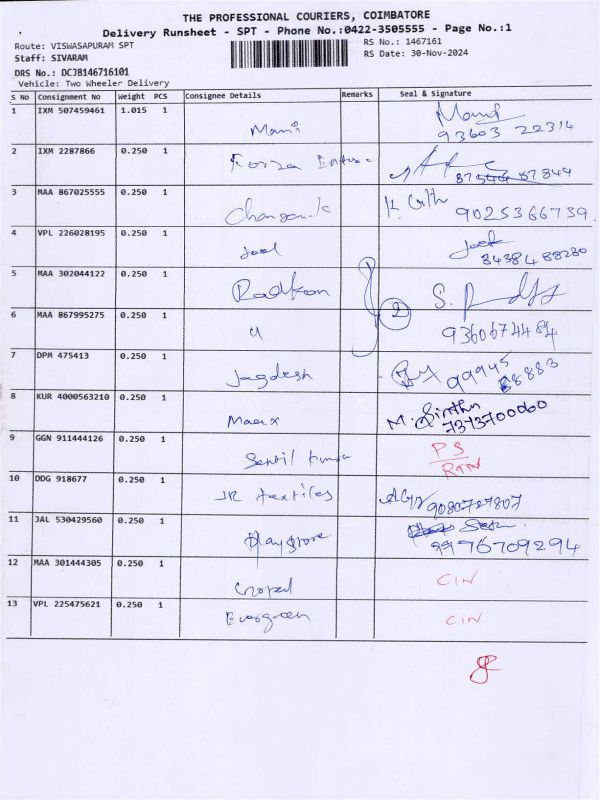 THE PROFESSIONAL COURIERS, COIMBATORE
Delivery Runsheet - SPT - Phone No.:0422-3505555 - Page No.:1
Route: VISWASAPURAM SPT
RS No.: 1467161
Staff: SIVARAM
RS Date: 30-Nov-2024
DRS No.: DCJB146716101
Vehicle: Two Wheeler Delivery
S No Consignment No Weight PCS Consignee Details Remarks Seal & Signature
1 IXM 507459461 1.015 1 Mani 93603 22314
2 IXM 2287866 0.250 1
3 MAA 867025555 0.250 1 9025366739
4 VPL 226028195 0.250 1 8438488280
5 MAA 302044122 0.250 1 Radkon
6 MAA 867995275 0.250 1 2 9360674484
7 DPM 475413 0.250 1 Jagdesh
8 KUR 4000563210 0.250 1 7373700060
9 GGN 911444126 0.250 1 PS
RTN
10 DDG 918677 0.250 1 JR textiles 9080727807
11 JAL 530429560 0.250 1 9976709294
12 MAA 301444305 0.250 1 CIN
13 VPL 225475621 0.250 1 Evergreen CIN